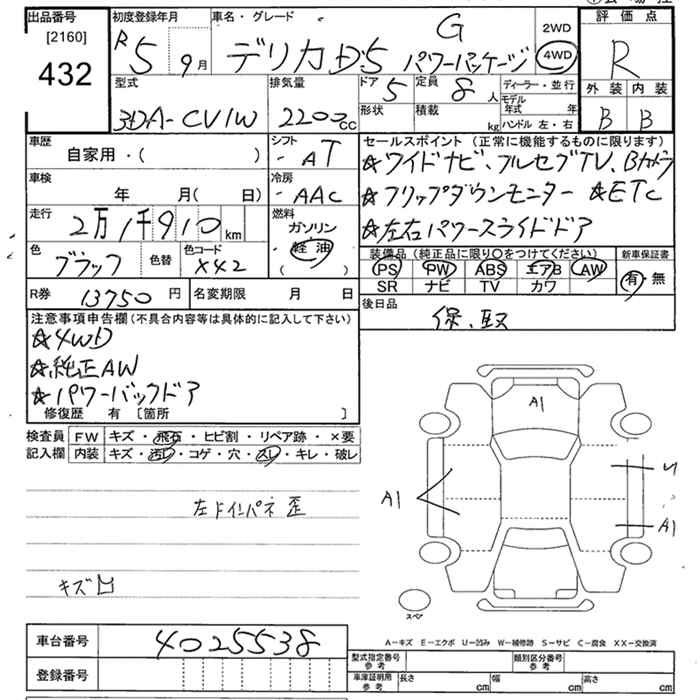 出品番号
[2160]
432
初度登録年月
R5 9月
車名・グレード
G
デリカD:5 パワーパッケージ
2WD
4WD
評価点
R
外装 内装
B B
型式
3DA-CV1W
排気量
2200cc
ドア 5
定員 8人
形状
積載 kg
ディーラー・並行
モデル年式 年
ハンドル 左・右
車歴
自家用・( )
シフト
-AT
車検
年 月( 日)
冷房
-AAC
走行
2万1千910km
燃料
ガソリン
軽油
( )
色
ブラック
色替
色コード
X42
R券 13750円
名変期限 月 日
セールスポイント (正常に機能するものに限ります)
☆ワイドナビ、フルセグTV、Bカメラ
☆フリップダウンモニター ☆ETC
☆左右パワースライドドア
装備品(純正品に限り○をつけてください)
PS PW ABS エアB AW
SR ナビ TV カワ
新車保証書
有・無
後日品
保、取
注意事項申告欄(不具合内容等は具体的に記入して下さい)
☆4WD
☆純正AW
☆パワーバックドア
修復歴 有 [箇所 ]
検査員記入欄
FW キズ・飛石・ヒビ割・リペア跡・×要
内装 キズ・汚レ・コゲ・穴・スレ・キレ・破レ
左ドインパネ歪
キズ凹
A1
A1
U
A1
スペア
A-キズ E-エクボ U-凹み W-補修跡 S-サビ C-腐食 XX-交換済
車台番号 4025538
登録番号
型式指定番号 参考
類別区分番号 参考
車庫証明用 参考
長さ cm
幅 cm
高さ cm